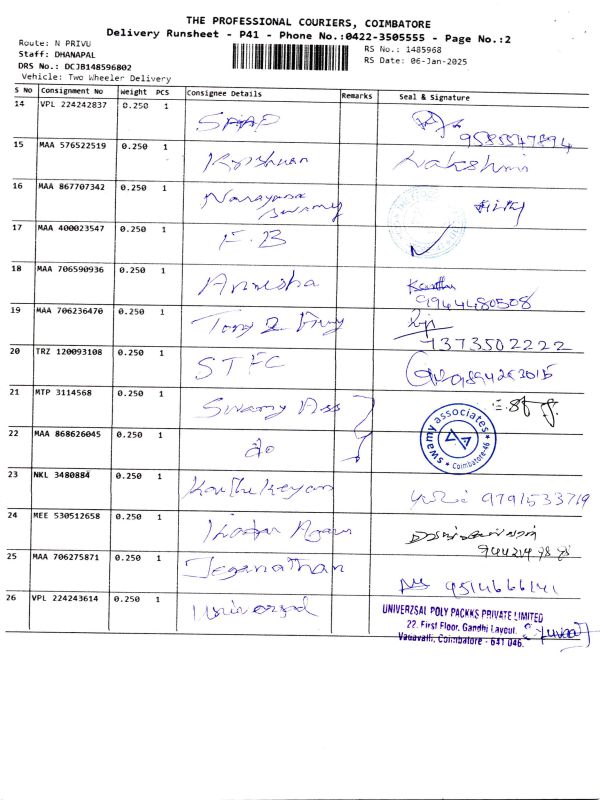 THE PROFESSIONAL COURIERS, COIMBATORE
Delivery Runsheet - P41 - Phone No.:0422-3505555 - Page No.:2
Route: N PRIVU
RS No.: 1485968
Staff: DHANAPAL
RS Date: 06-Jan-2025
DRS No.: DCJB148596802
Vehicle: Two Wheeler Delivery
S No Consignment No Weight PCS Consignee Details Remarks Seal & Signature
14 VPL 224242837 0.250 1
9585547894
15 MAA 576522519 0.250 1 Krishnan Lakshmi
16 MAA 867707342 0.250 1 Narayana
Swamy
17 MAA 400023547 0.250 1 F.B
18 MAA 706590936 0.250 1 Anusha
9944480508
19 MAA 706236470 0.250 1 Tony &
7373502222
20 TRZ 120093108 0.250 1 STFC 9894253015
21 MTP 3114568 0.250 1 Swamy Ass
swamy associates
* Coimbatore-46 *
22 MAA 868626045 0.250 1 do
23 NKL 3480884 0.250 1 Karthikeyan 9791533719
24 MEE 530512658 0.250 1
25 MAA 706275871 0.250 1 Jeganathan
9514666141
26 VPL 224243614 0.250 1 Universal
UNIVERZSAL POLY PACKKS PRIVATE LIMITED
22, First Floor, Gandhi Layout,
Vadavalli, Coimbatore - 641 046.